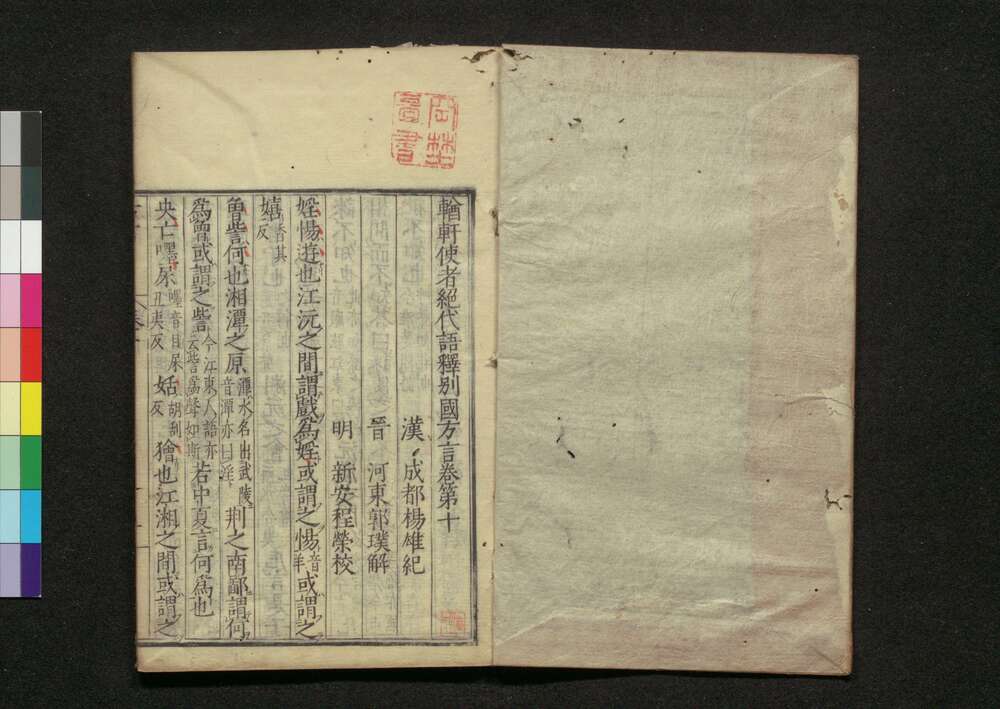 輶軒使者絕代語釋別國方言卷第十
漢 成都楊雄紀
晉 河東郭璞解
明 新安程榮校
婬惕遊也江沅之間謂戲為婬或謂之惕音羊或謂之
嬉香其反
曾訾何也湘潭之原潭水名出武陵音潭亦曰淫荊之南鄙謂何
為曾或謂之訾今江東人語亦云訾為聲如斯若中夏言何為也
央亡嚜尿嚜音目尿丑夷反姡胡刮反獪也江湘之間或謂之